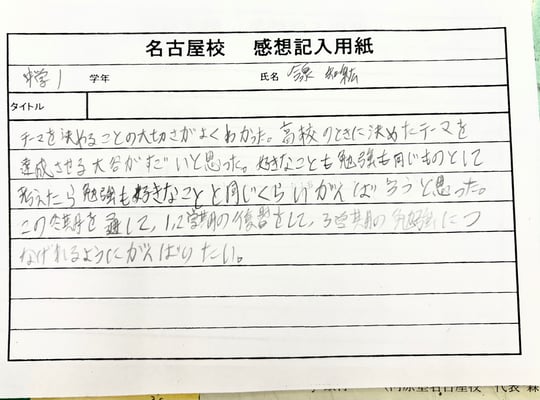 名古屋校 感想記入用紙
中学1 学年 氏名
タイトル
テーマを決めることの大切さがよくわかった。高校のときに決めたテーマを
達成させる大谷がすごいと思った。好きなことも勉強も同じものとして
考えたら勉強も好きなことと同じくらいがんばろうと思った。
この冬期を通して、1,2学期の復習をして、3学期の勉強につ
なげれるようにがんばりたい。